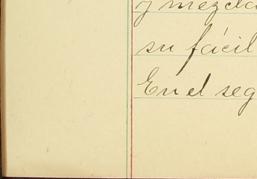 y mezcla
su fácil
En el seg